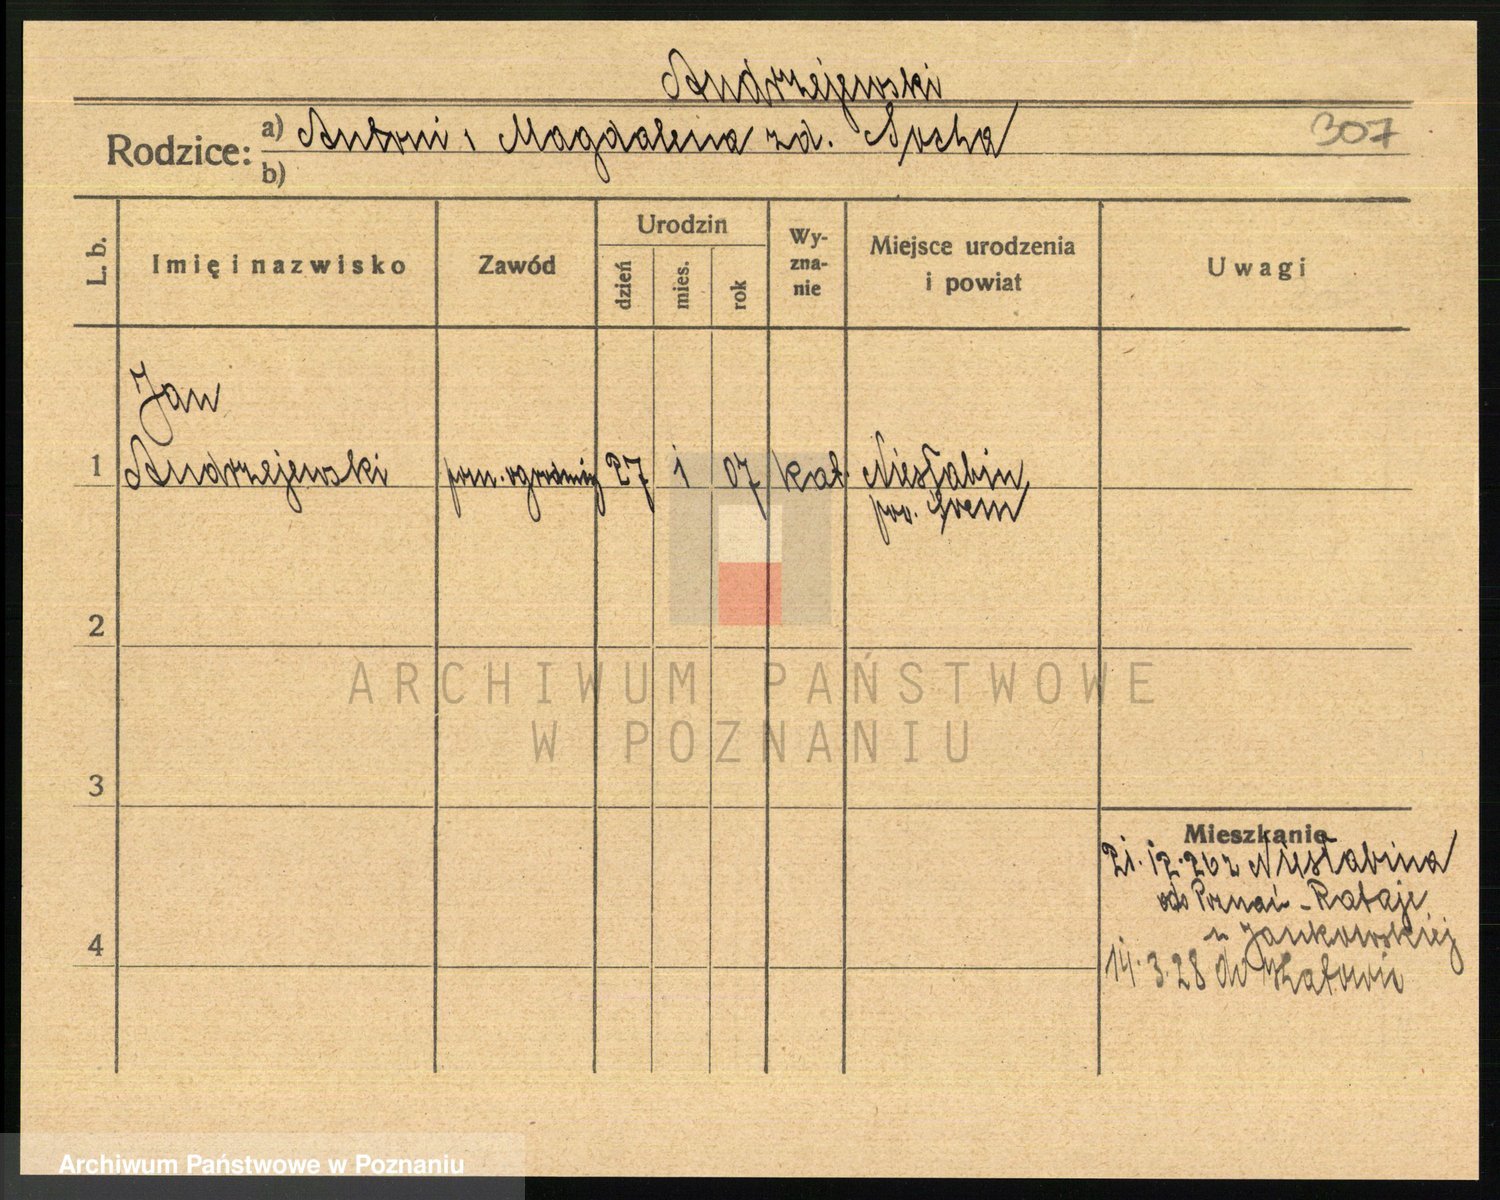 Andrzejewski
Rodzice: a) Antoni i Magdalena zd. Socha
307
b)
L. b.
Imię i nazwisko
Zawód
Urodzin
dzień
mies.
rok
Wy-
zna-
nie
Miejsce urodzenia
i powiat
Uwagi
Jan
1 Andrzejewski pom. 27 1 07 kat. Niesłabin
pow. Śrem
2
ARCHIWUM PAŃSTWOWE
W POZNANIU
3
Mieszkanie
21. 12. Niesłabina
Poznań - Rataje
u Jankowskiej
4
14. 3. 28 do Katowic
Archiwum Państwowe w Poznaniu